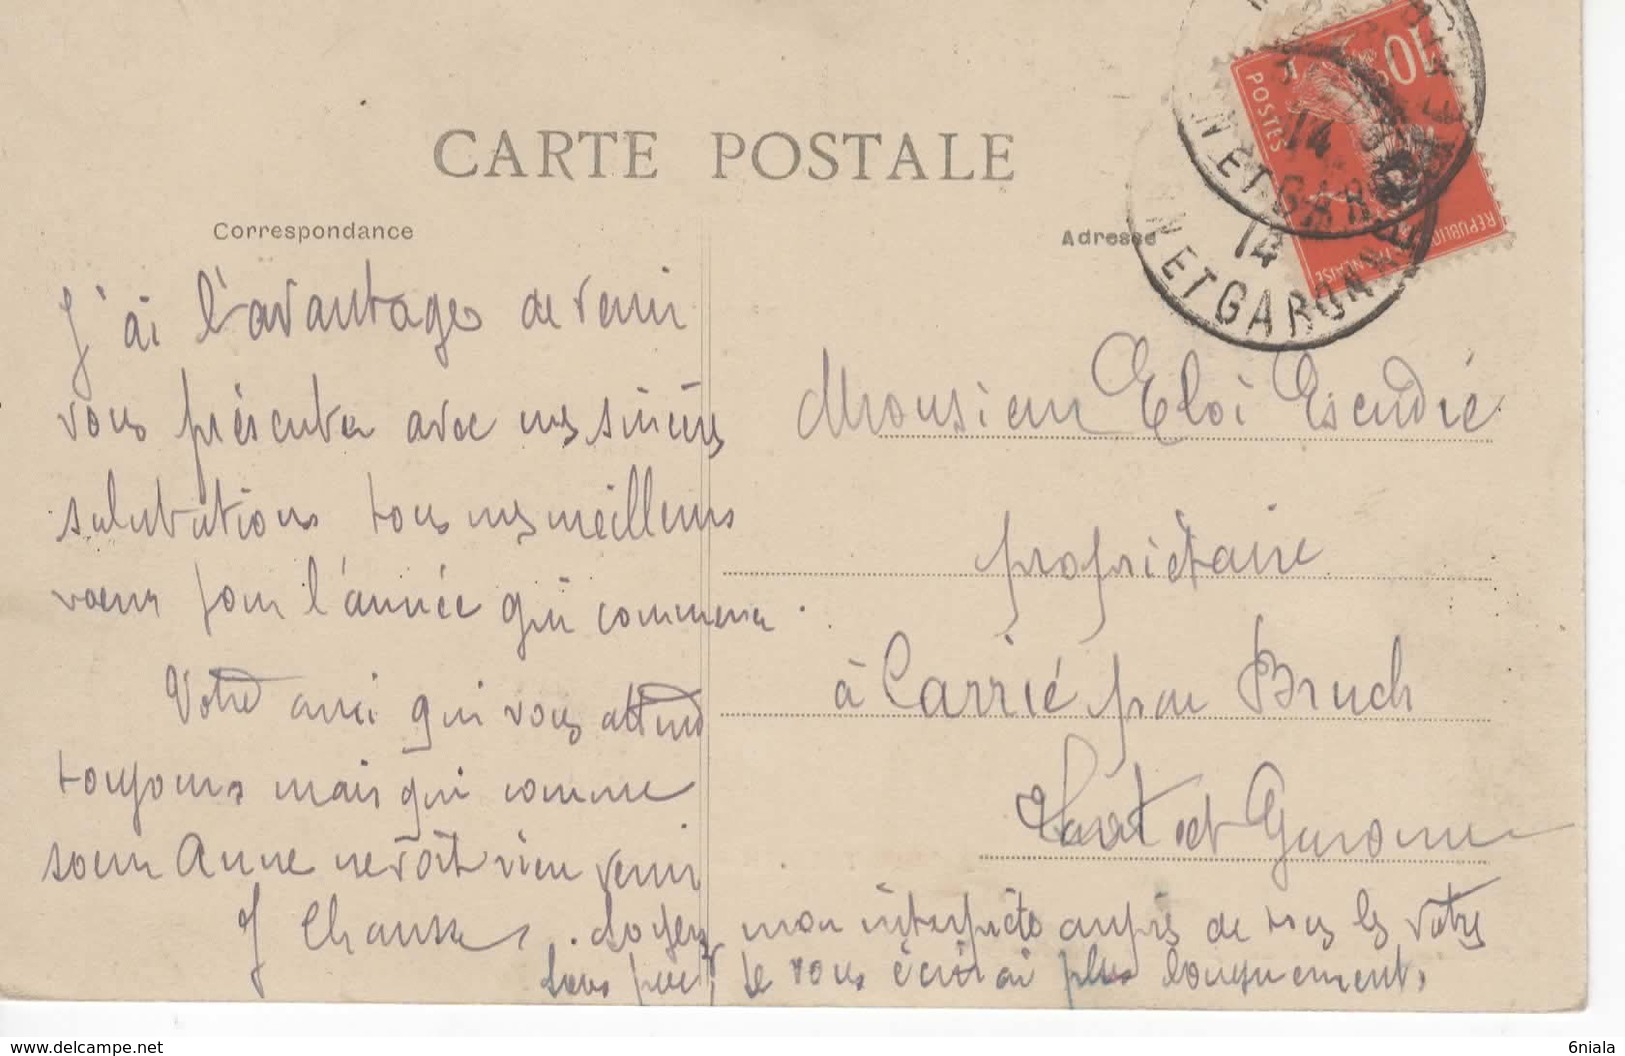 CARTE POSTALE
Correspondance
Adresse
10
POSTES
REPUBLIQUE FRANÇAISE
14
N ET GARONNE
14
N ET GARONNE
J'ai l'avantage de venir
vous présenter avec mes sincères
salutations tous mes meilleurs
vœux pour l'année qui commence.
Votre ami qui vous attend
toujours mais qui comme
sœur Anne ne voit rien venir
J
Soyez mon interprète auprès de tous les vôtres
Sous peu, je vous écrirai plus longuement.
Monsieur Eloi Escudié
propriétaire
à Carrié par Bruch
Lot et Garonne
www.delcampe.net
6niala